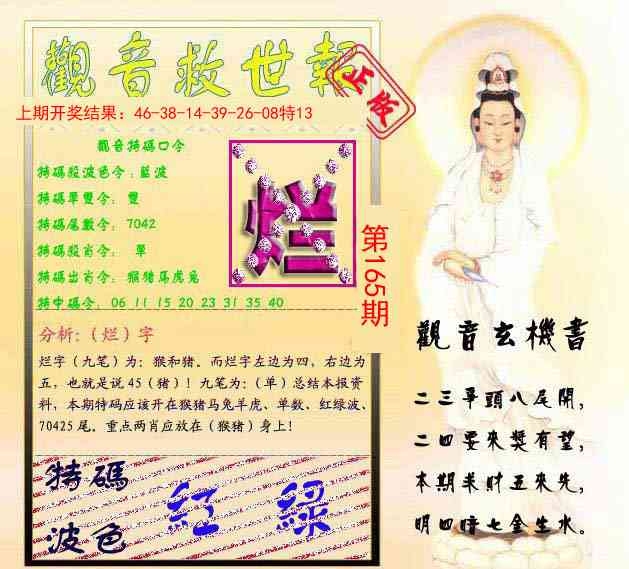 觀音救世報
正版
上期开奖结果：46-38-14-39-26-08特13
觀音特碼口令
特碼殺波色令：藍波
特碼單雙令： 雙
特碼尾數令： 7042
特碼殺肖令： 單
特碼出肖令： 猴猪馬虎兔
特中碼令： 06 11 15 20 23 31 35 40
烂
第165期
分析:（烂）字
烂字（九笔）为：猴和猪。而烂字左边为四，右边为
五，也就是说 45（猪）！九笔为：（单）总结本报资
料，本期特码应该开在猴猪马兔羊虎、单数、红绿波、
70425 尾。重点两肖应放在（猴猪）身上！
特碼
波色
紅 綠
觀音玄機書
二三爭頭八尾開，
二四要來獎有望，
本期求財五來先，
明四暗七金生水。